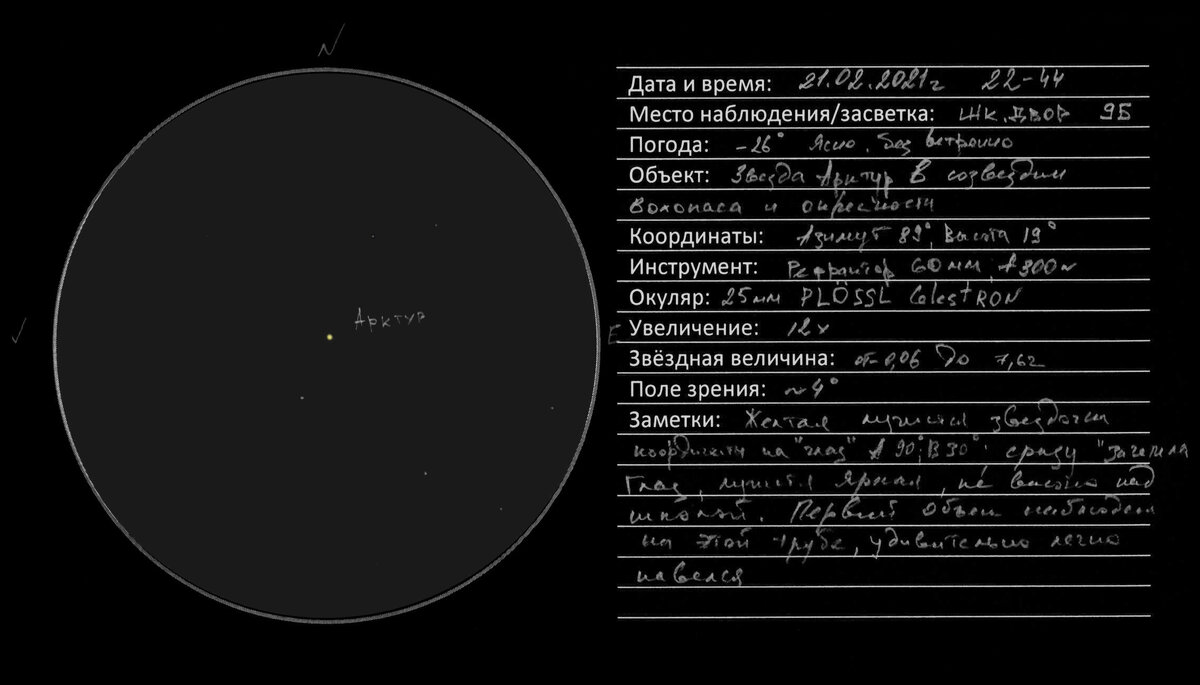 N
Арктур
E
Дата и время: 21.02.2021г 22-44
Место наблюдения/засветка: ЖК. ДВОР 9Б
Погода: -26° Ясно, без ветренно
Объект: Звезда Арктур в созвездии
Волопаса и окресности
Координаты: Азимут 89°, Высота 19°
Инструмент: Рефрактор 60мм, f 300м
Окуляр: 25мм PLÖSSL CelestRON
Увеличение: 12х
Звёздная величина: от-0,06 До 7,62
Поле зрения: ~4°
Заметки: Желтая лучистая звездочка
координаты на "глаз" А 90°; В 30° сразу "зацепила
Глаз, лучится яркая, не высоко над
школой. Первый объект наблюдаем
на этой трубе, удивительно легко
навелся